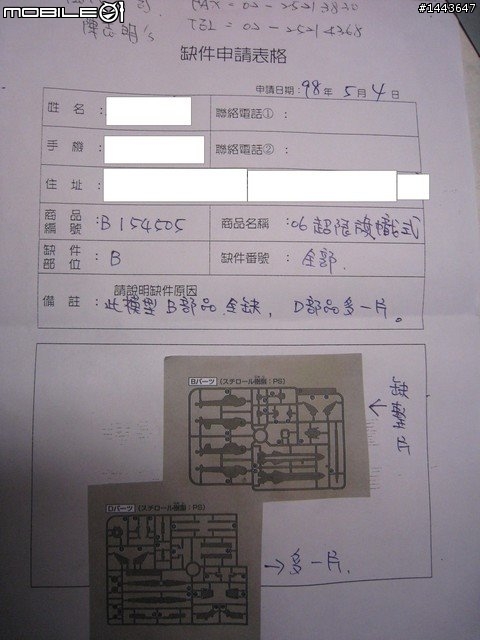 MOBILE01
#1443647
FAX = 02 - 25213830
陳志明's TEL = 02 - 25214368
缺件申請表格
申請日期：98 年 5 月 4 日
姓 名 ： 聯絡電話① ：
手 機 ： 聯絡電話② ：
住 址 ：
商品編號 ：B 154505 商品名稱 ：06 超限旗幟式
缺件部位 ：B 缺件番號 ：全部.
請說明缺件原因
備 註 ：此模型 B部品 全缺， D部品多一片。
Bパーツ (スチロール樹脂：PS)
←缺整片
Dパーツ (スチロール樹脂：PS)
→多一片.